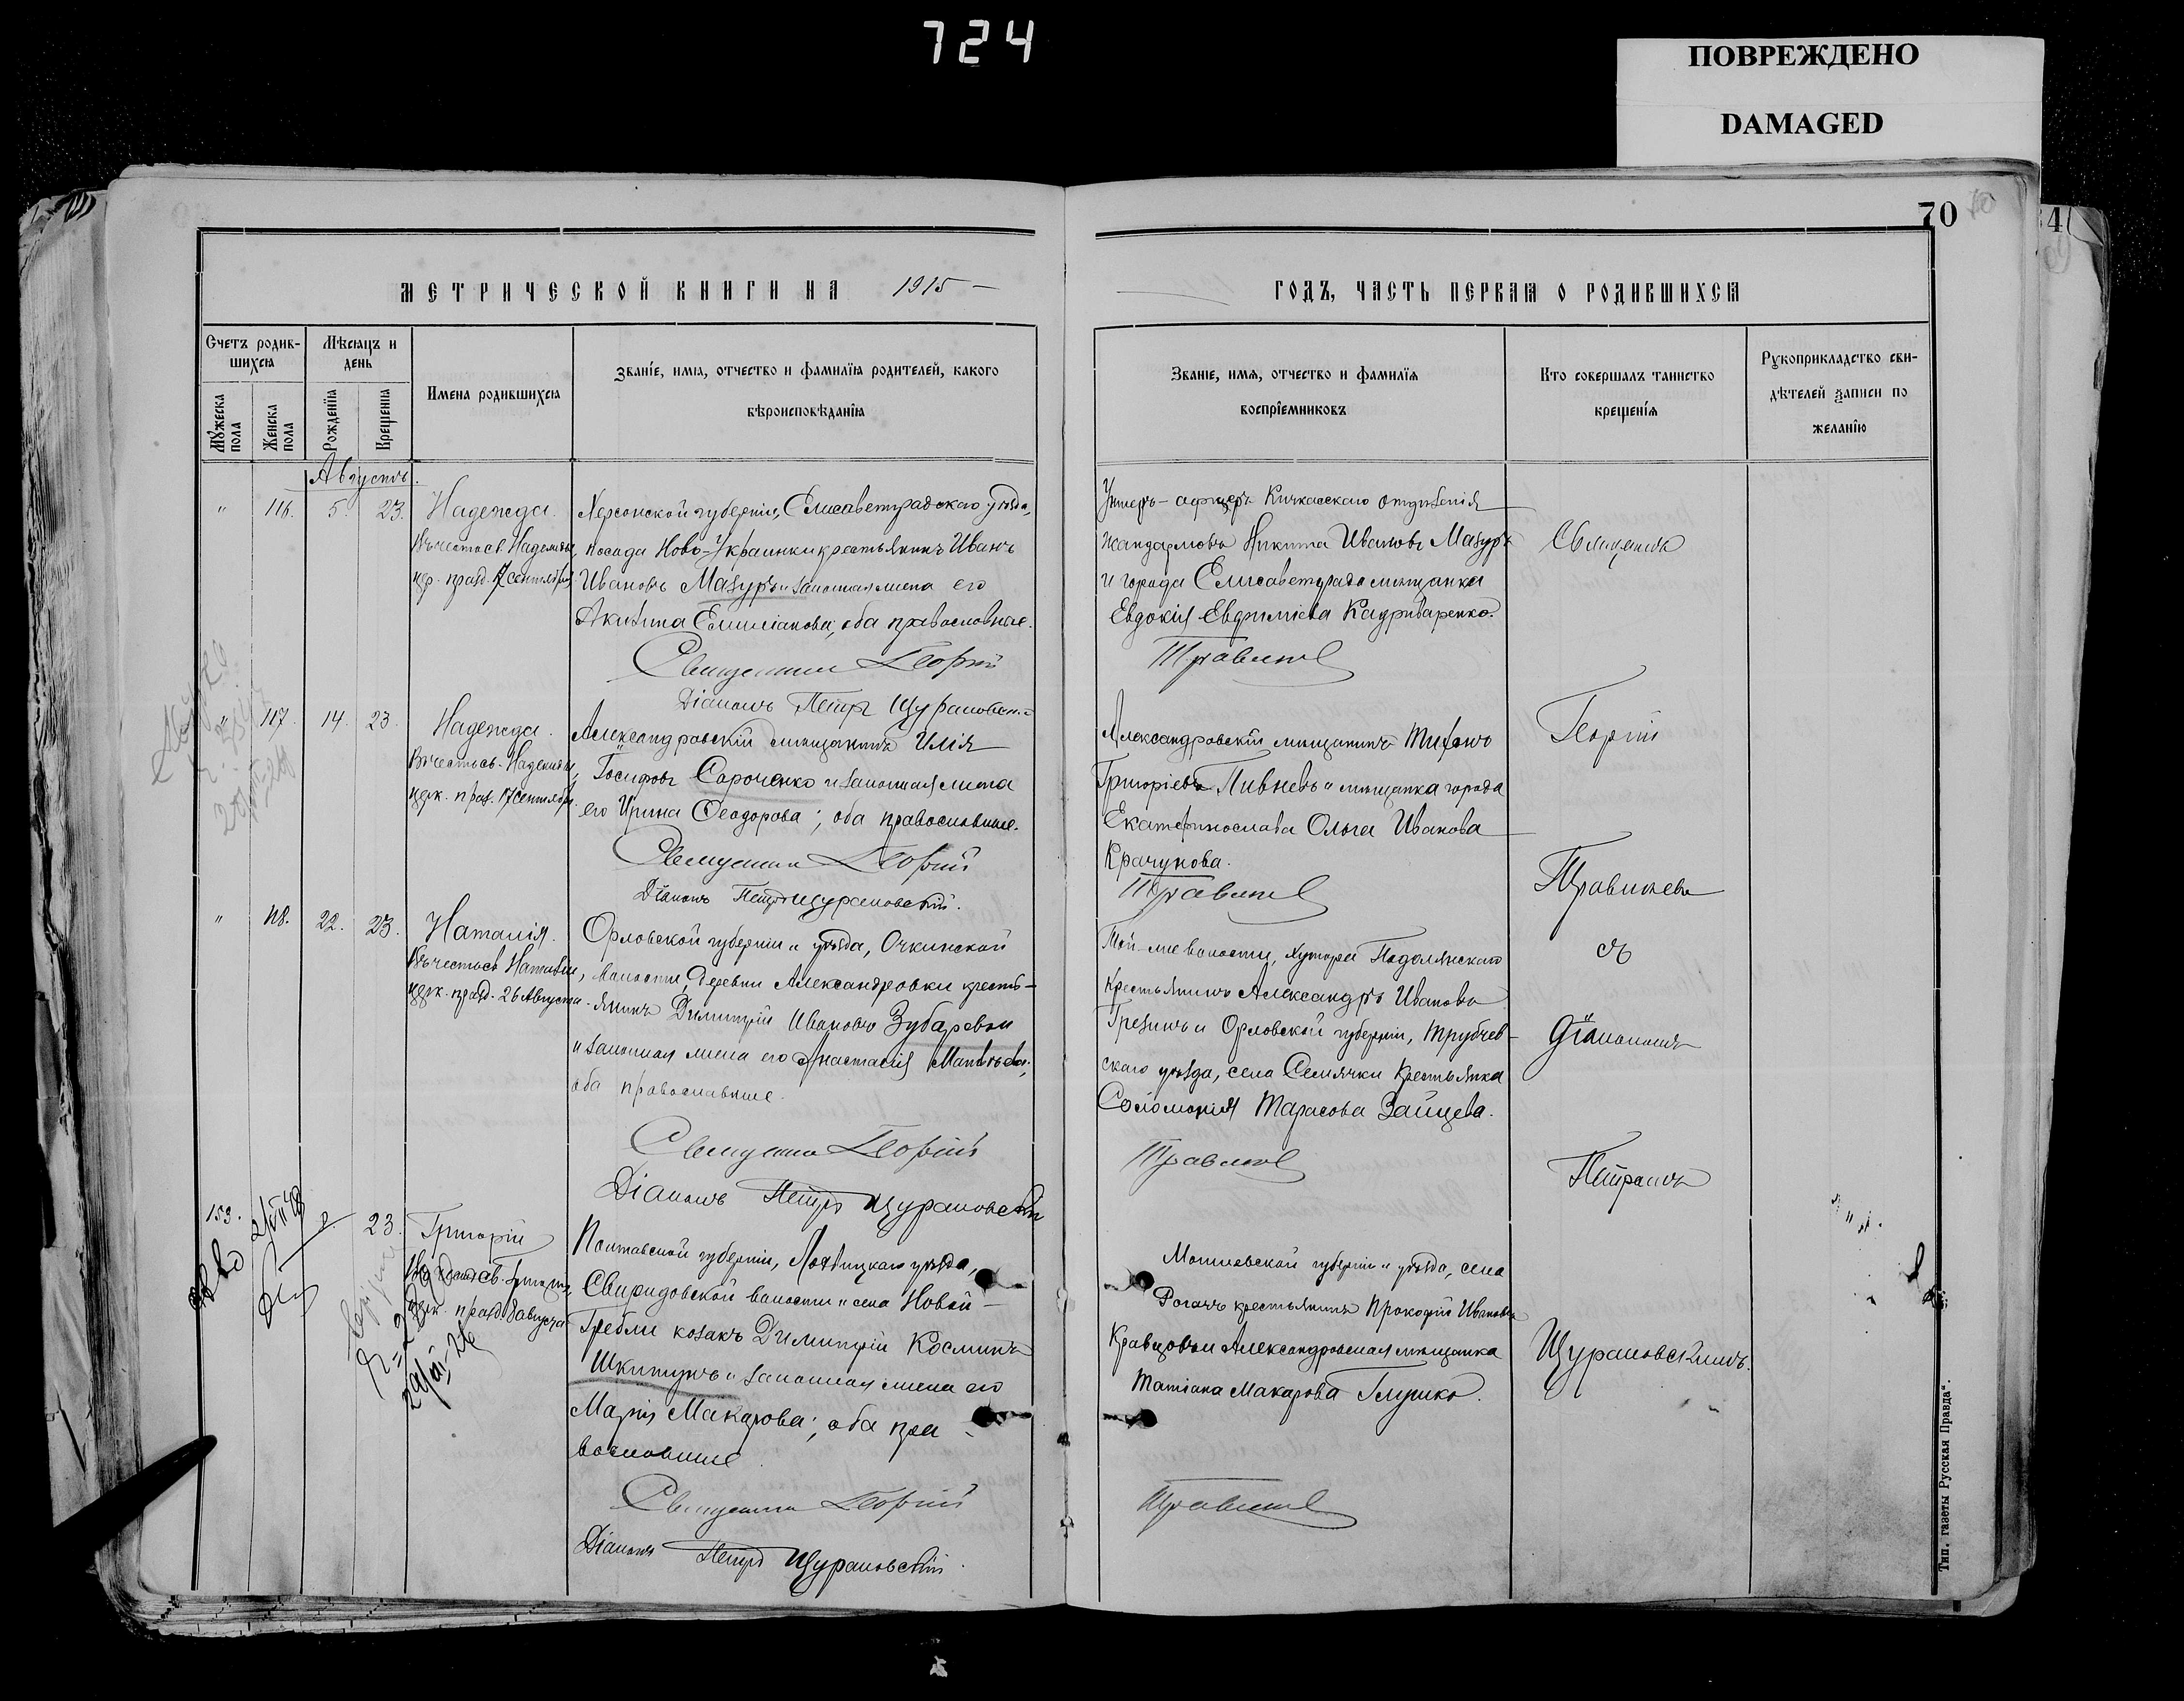 724
ПОВРЕЖДЕНО
DAMAGED
70
4
МЕТРИЧЕСКОЙ КНИГИ НА 1915 –
ГОДЪ, ЧАСТЬ ПЕРВАЯ О РОДИВШИХСЯ
Счетъ родив-
шихся
Мѣсяцъ и
день
Мужеска
пола
Женска
пола
Рожденія
Крещенія
Имена родившихся
Званіе, имя, отчество и фамилія родителей, какого
вѣроисповѣданія
Званіе, имя, отчество и фамилія
воспріемниковъ
Кто совершалъ таинство
крещенія
Рукоприкладство сви-
дѣтелей записи по
желанію
Августъ.
" 116. 5. 23.
Надежда.
Въ честь св. Надежды,
цр. празд. 17 сентября.
Херсонской губерніи, Елисаветградскаго уѣзда,
посада Ново-Украинки крестьянинъ Иванъ
Ивановъ Мазуръ и законная жена его
Акилина Емиліанова; оба православные.
Священникъ Георгій
Діаконъ Петръ Щурановскій
Унтеръ-офицеръ Кичкасскаго отдѣленія
жандармовъ Никита Ивановъ Мазуръ
и города Елисаветграда мѣщанка
Евдокія Евфиміева
Правиковъ
" 117. 14. 23.
Надежда.
Въ честь св. Надежды,
церк. праз. 17 сентября.
Александровскій мѣщанинъ Илія
Іосифовъ Сароченко и законная жена
его Ирина Ѳеодорова; оба православные.
Священникъ Георгій
Діаконъ Петръ Щурановскій.
Александровскій мѣщанинъ Тихонъ
Григоріевъ Пивневъ и мѣщанка города
Екатеринослава Ольга Иванова
Крачунова.
" 118. 22. 23.
Наталія.
Въ честь св. Наталіи,
церк. празд. 26 Августа.
Орловской губерніи и уѣзда, Очкинской
волости, деревни Александровки кресть-
янинъ Димитрій Ивановъ Зубаревъ
и законная жена его Анастасія Матвѣева;
оба православные.
Священникъ Георгій
Діаконъ Петръ Щурановскій
Той-же волости, хутора Подолянскаго
крестьянинъ Александръ Ивановъ
Грезинъ и Орловской губерніи, Трубчев-
скаго уѣзда, села Семячки крестьянка
Соломонія Тарасова Зайцева.
153. 8. 23.
Григорій
церк. празд. 8 августа
Полтавской губерніи, Лохвицкаго уѣзда,
Свиридовской волости и села Новой-
Гребли козакъ Димитрій Косминъ
Шкитунъ и законная жена его
Марія Макарова; оба пра-
вославные.
Священникъ Георгій
Діаконъ Петръ Щурановскій.
Могилевской губерніи и уѣзда, села
Рогачъ крестьянинъ Прокофій Ивановъ
Кравцовъ и Александровская мѣщанка
Татіана Макарова Глушко.
Священникъ
Георгій
Правиковъ
съ
діакономъ
Петромъ
Щурановскимъ.
Тип. газеты Русская Правда“.